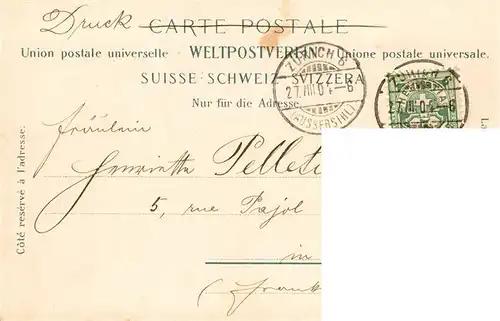 Druck
CARTE POSTALE
Union postale universelle. WELTPOSTVEREIN Unione postale universale.
SUISSE·SCHWEIZ·SVIZZERA
Nur für die Adresse.
ZÜRICH 6
27.VIII.04.-6
(AUSSERSIHL)
27.VIII.04.-6
Fräulein
Henriette Pelleti
5, rue Pajol
in
(Frank
Côté reservé à l'adresse.